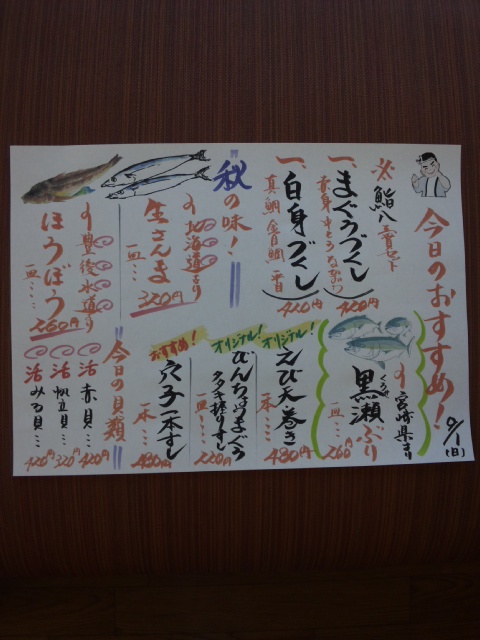 今日のおすすめ!
9/1
(日)
※鮨八三貫セット
一、まぐろづくし
420円
一、白身づくし
真鯛 金目鯛 平目
420円
秋の味!
北海道より
生さんま
一皿…
320円
豊後水道より
ほうぼう
一皿…
260円
宮崎県より
くろせ
黒瀬ぶり
一皿…
260円
オリジナル!
えび天巻き
一本…
480円
オリジナル!
びんちょうまぐろ
タタキ握りずし
一皿…
220円
おすすめ!
穴子一本すし
一本…
480円
今日の貝類
活 赤貝…
420円
活 帆立貝…
320円
活 みる貝…
420円